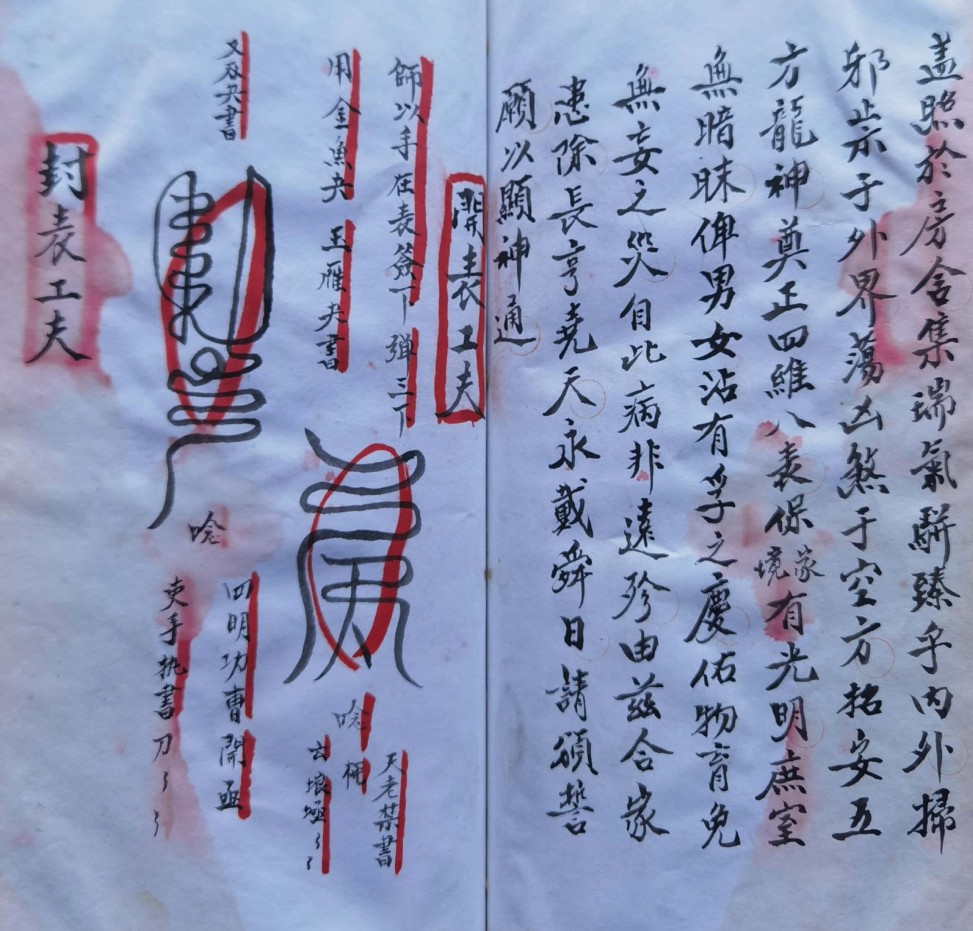 盖照於房舍集瑞氣駢臻乎内外掃
邪祟于外界蕩凶煞于空方招安五
方龍神奠正四維八表保家境有光明庶室
無暗昧俾男女沾有孚之慶佑物育免
無妄之災自此病非遠殄由茲合家
患除長亨堯天永戴舜日請頒誓
願以顯神通
開表工夫
師以手在表簽下弹三下
用金魚夬 玉雁夬書
唸
天老禁書
又吞夬書
唸
四明功曹開函
吏手执書刀
封表工夫